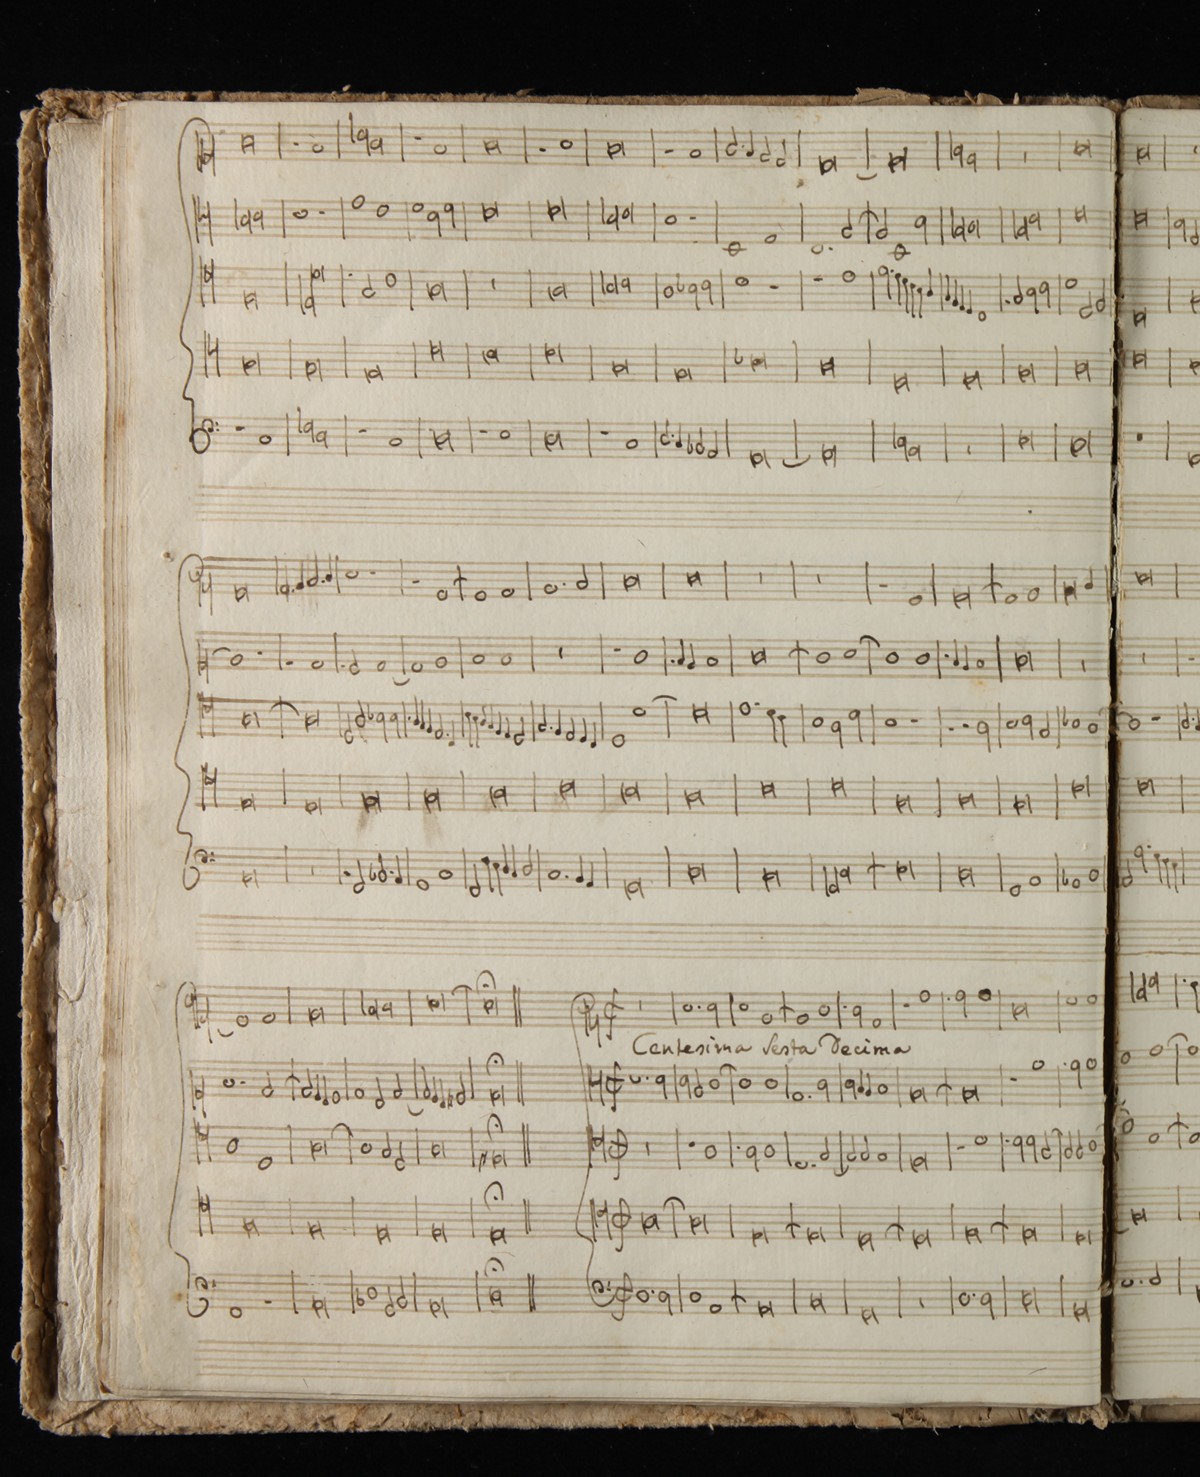 Centesima Sesta Decima